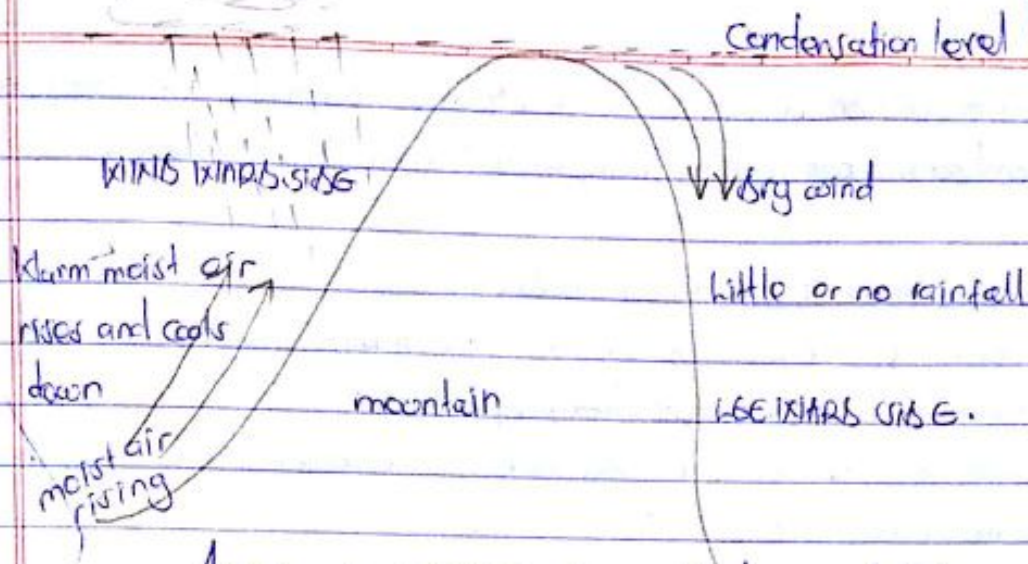 Condensation level
WIND WARDS SIDE
Dry wind
Warm moist air
rises and cools
down
Little or no rainfall
mountain
LEE WARD SIDE.
moist air
rising